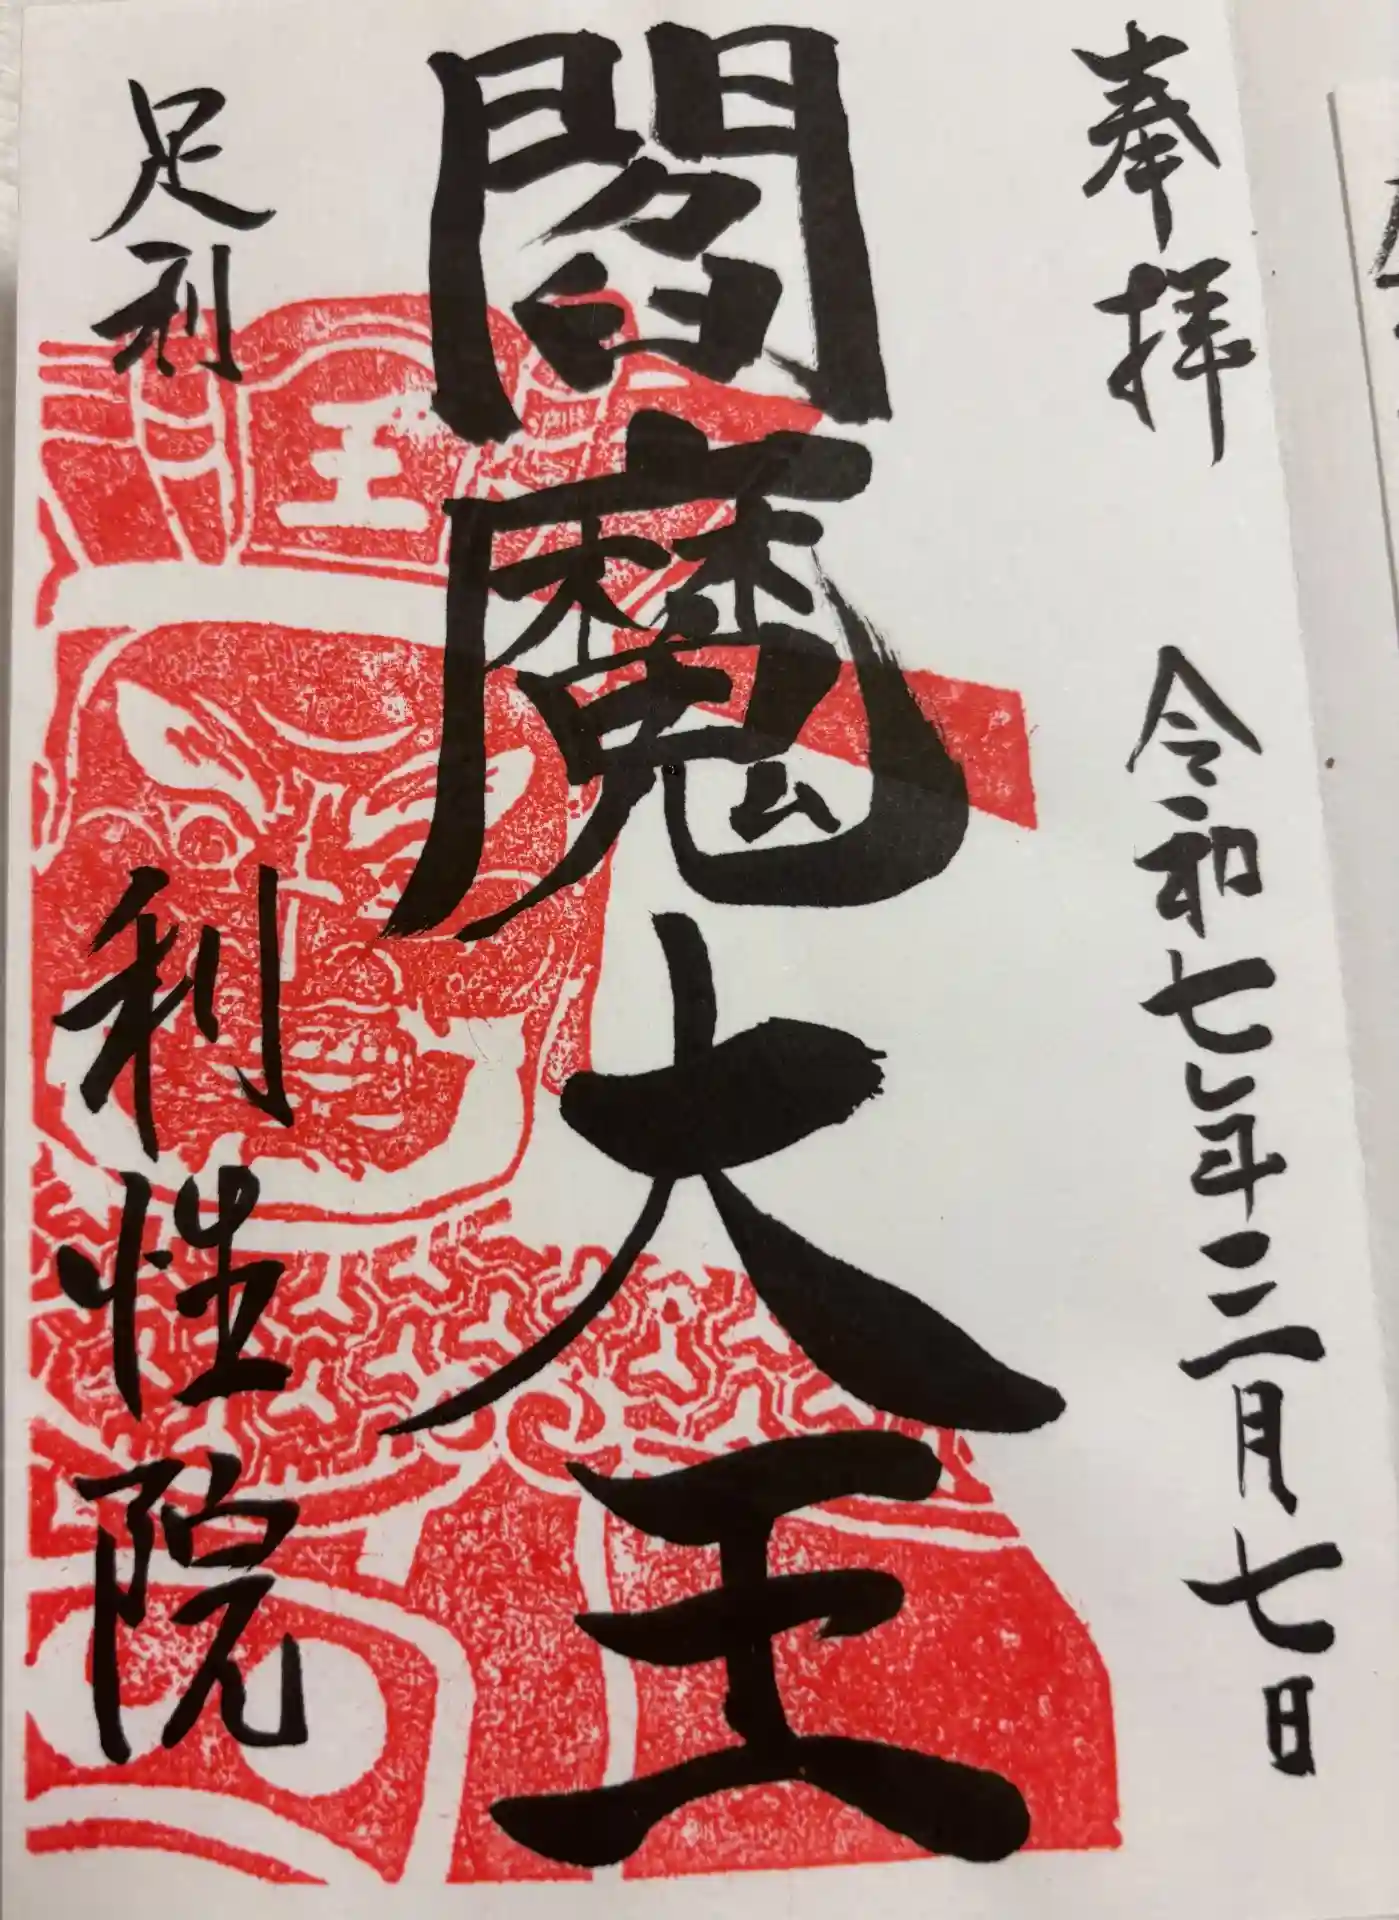 奉拝 令和七年三月七日
閻魔大王
足利 利性院
王